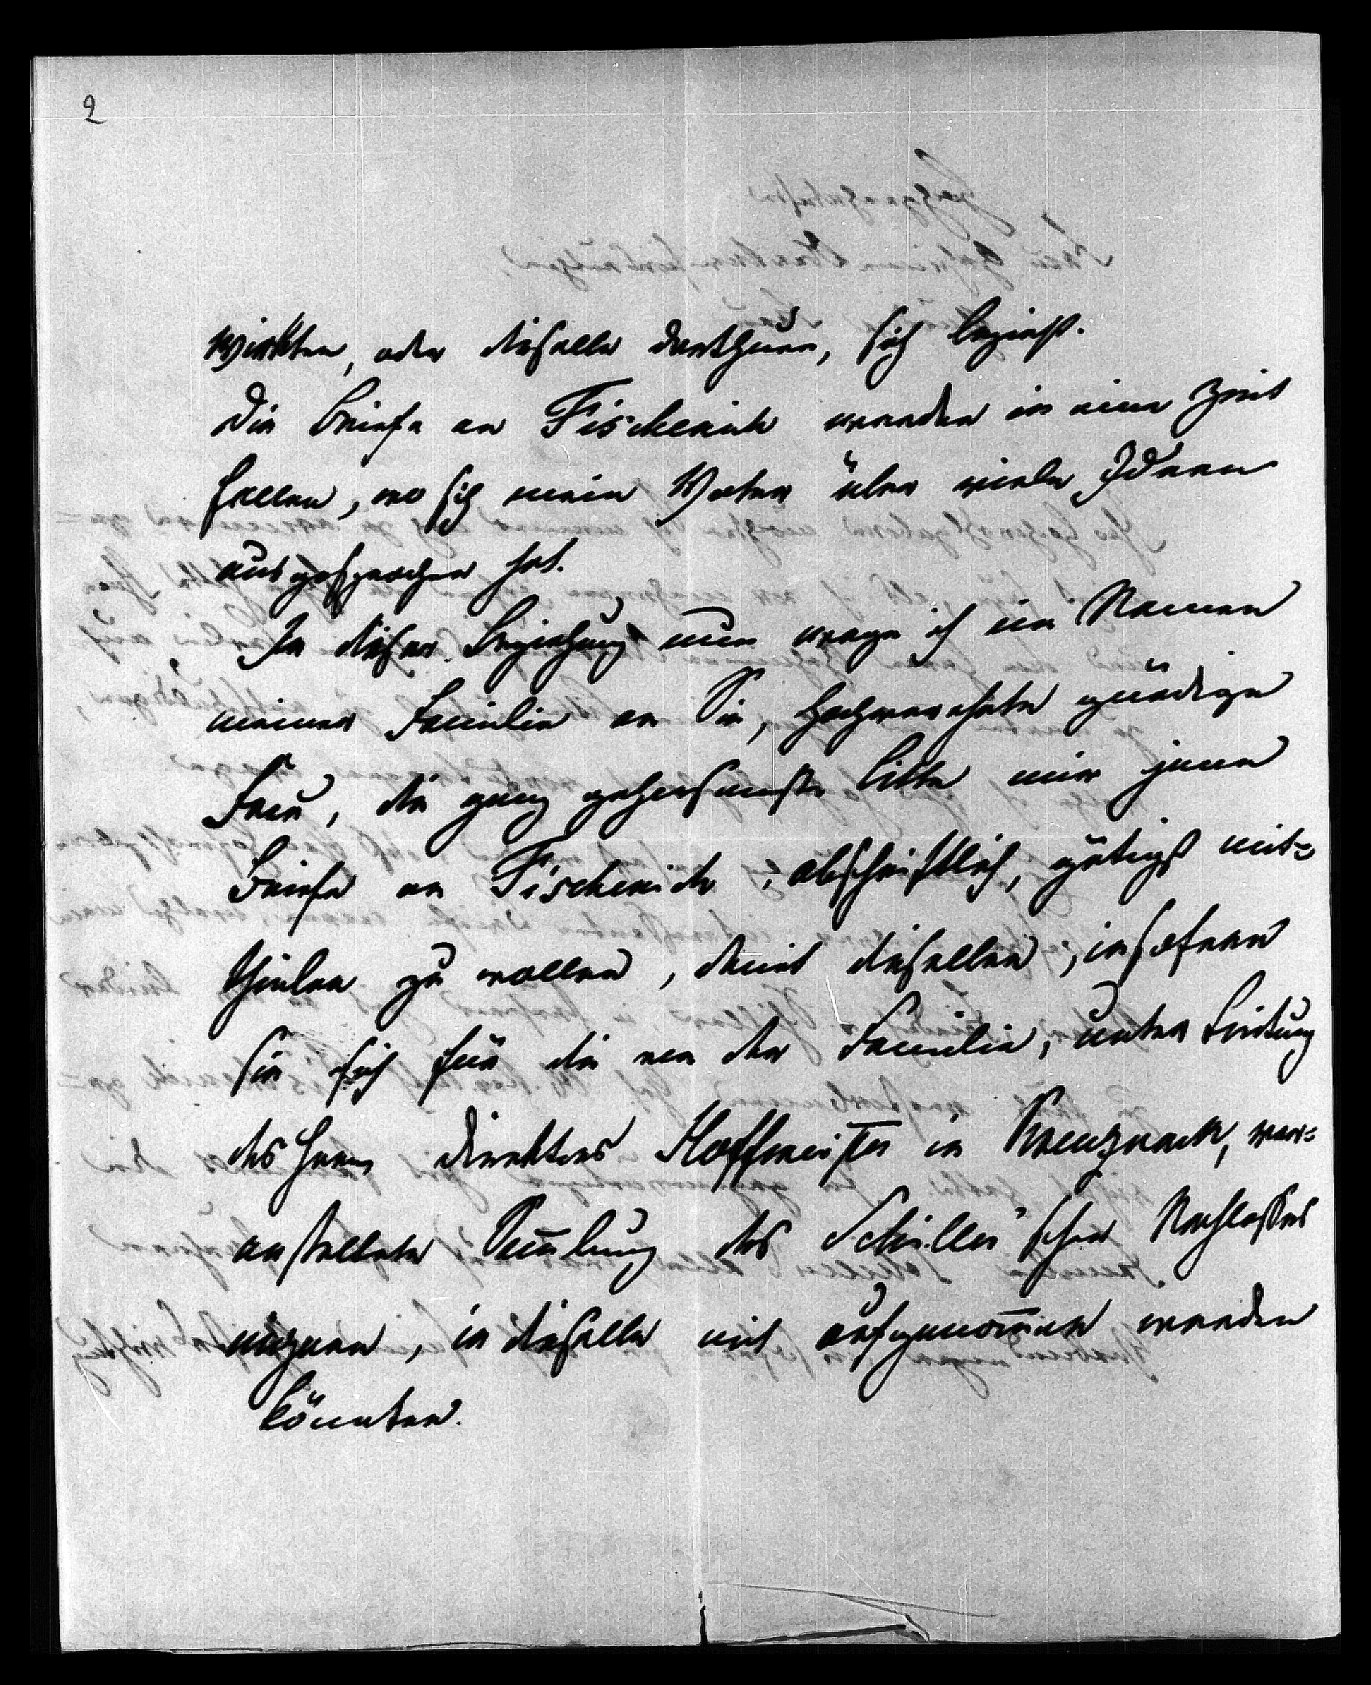 2
wirkten, oder dieselbe darthun, sich bezieht.
Die Briefe an Fischenich werden in eine Zeit
fallen, wo sich mein Vater über viele Ideen
ausgesprochen hat.
In dieser Beziehung nun wage ich im Namen
meiner Familie an Sie, hochverehrte gnädige
Frau, die ganz gehorsamste Bitte mir jene
Briefe an Fischenich, abschriftlich, gütigst mit=
theilen zu wollen, damit dieselben, insofern
sie sich für die von der Familie, unter Leitung
des Herrn Direktors Hoffmeister in Kreuznach, ver=
anstaltete Samlung des Schiller'schen Nachlaßes
eignen, in dieselbe mit aufgenomen werden
könnten.